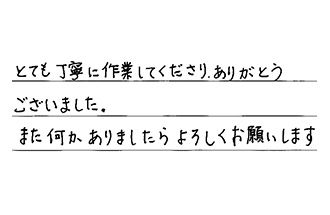 とても丁寧に作業してくださり、ありがとう
ございました。
また何かありましたらよろしくお願いします